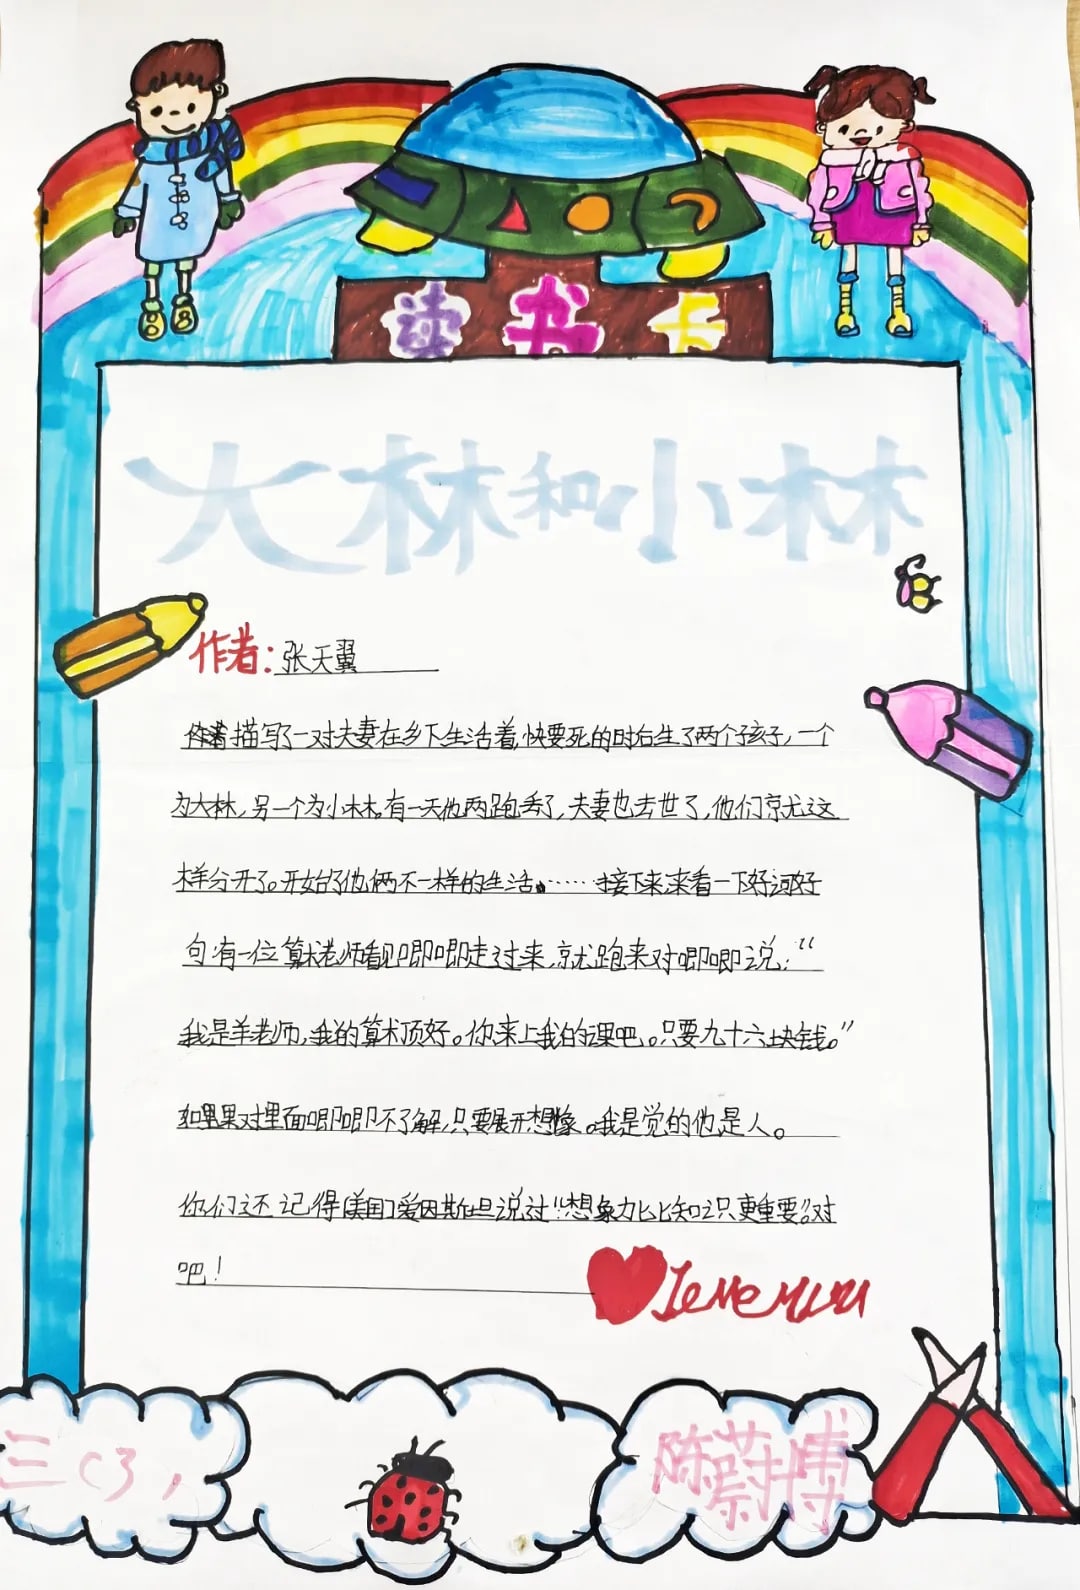 读书卡
大林和小林
作者:张天翼
作者描写了一对夫妻在乡下生活着,快要死的时后生了两个孩子,一个
为大林,另一个为小林。有一天他两跑丢了,夫妻也去世了,他们京尤这
样分开了。开始了他俩不一样的生活。……接下来,来看一下好词好
句有一位算术老师看见唧唧走过来,就跑来对唧唧说:“
我是羊老师,我的算术顶好。你来上我的课吧。只要九十六块钱。”
如果对里面唧唧不了解,只要展开想像。我是觉的他是人。
你们还记得美国爱因斯坦说过“想象力比知识更重要”对
吧!
三(3)
陈蔚博